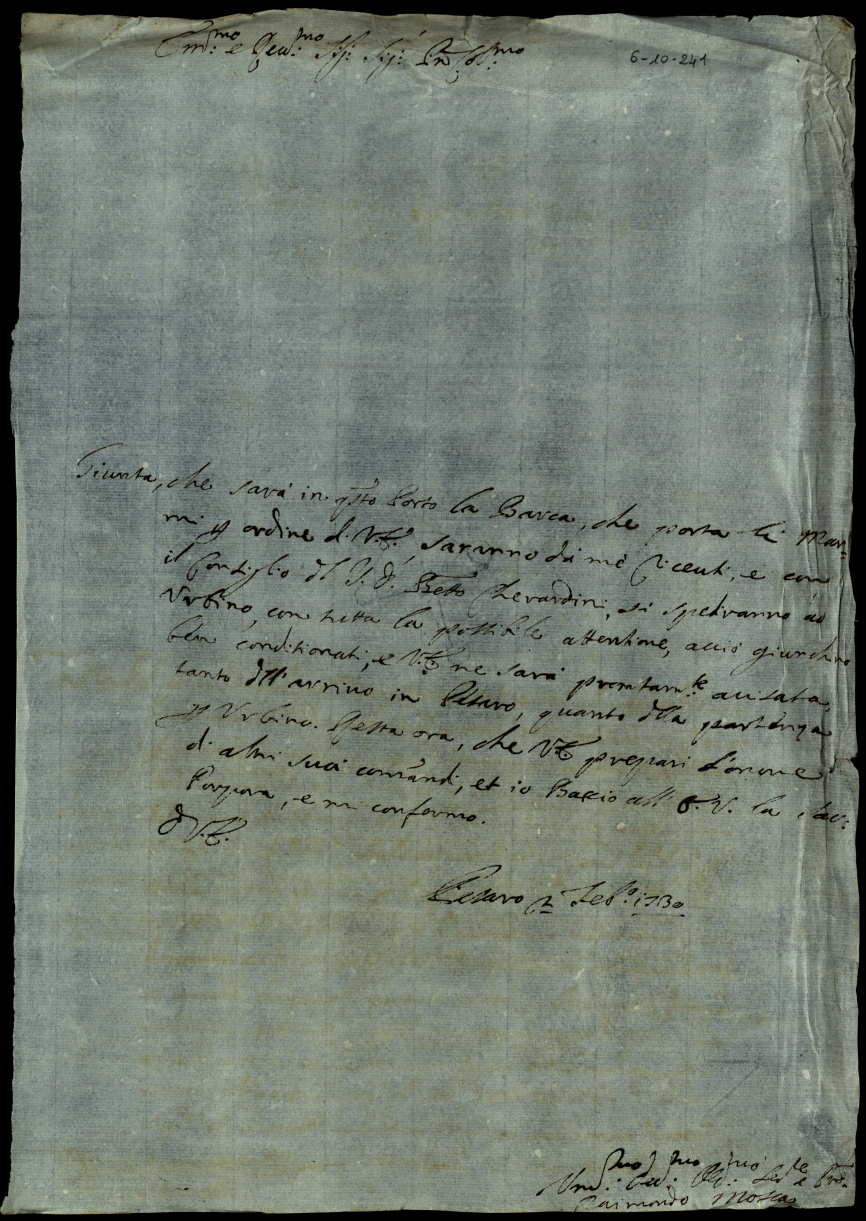 Em.mo e Rev.mo Sig: Sig: P.rn Col.mo
6-10-241
Giunta, che sarà in q̃sto Porto la Barca, che porta li Mar=
mi ꝑ ordine di V.E., saranno da me riceuti, e con
il Consiglio del S.r Betto Gherardini, si spediranno ad
Vrbino, con tutta la possibile attentione, acciò giunchino
ben conditionati, e V.E. ne sarà prontam.te auisata,
tanto dell'arriuo in Pesaro, quanto della partenza
ꝑ Vrbino. Resta ora, che V.E. prepari l'onore
di altri suoi comandi, et io Baccio all'E.V. la Sac:
Porpora, e mi confermo.
D. V.E.
Pesaro 2 Feb.o 1730
Vm.mo Deu.mo Obl.mo Ser.re
Raimondo Mosca